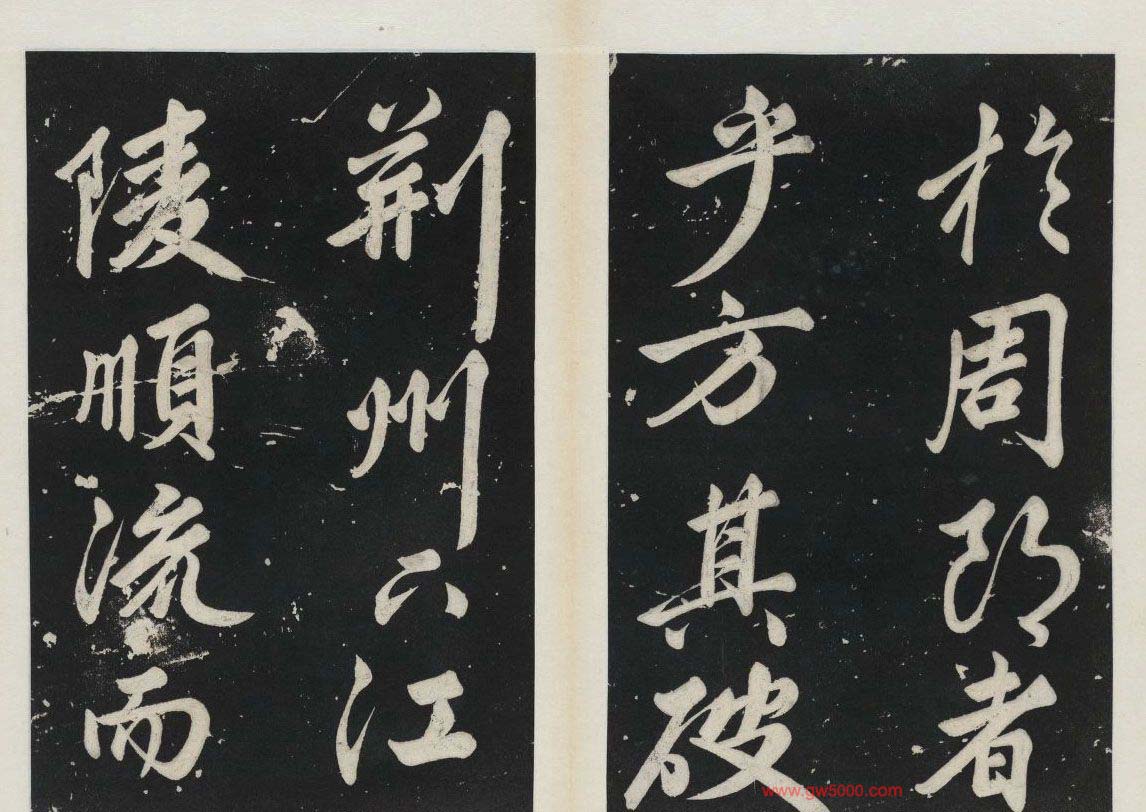 於周郎者
乎方其破
荆州下江
陵順流而
www.gw5000.com